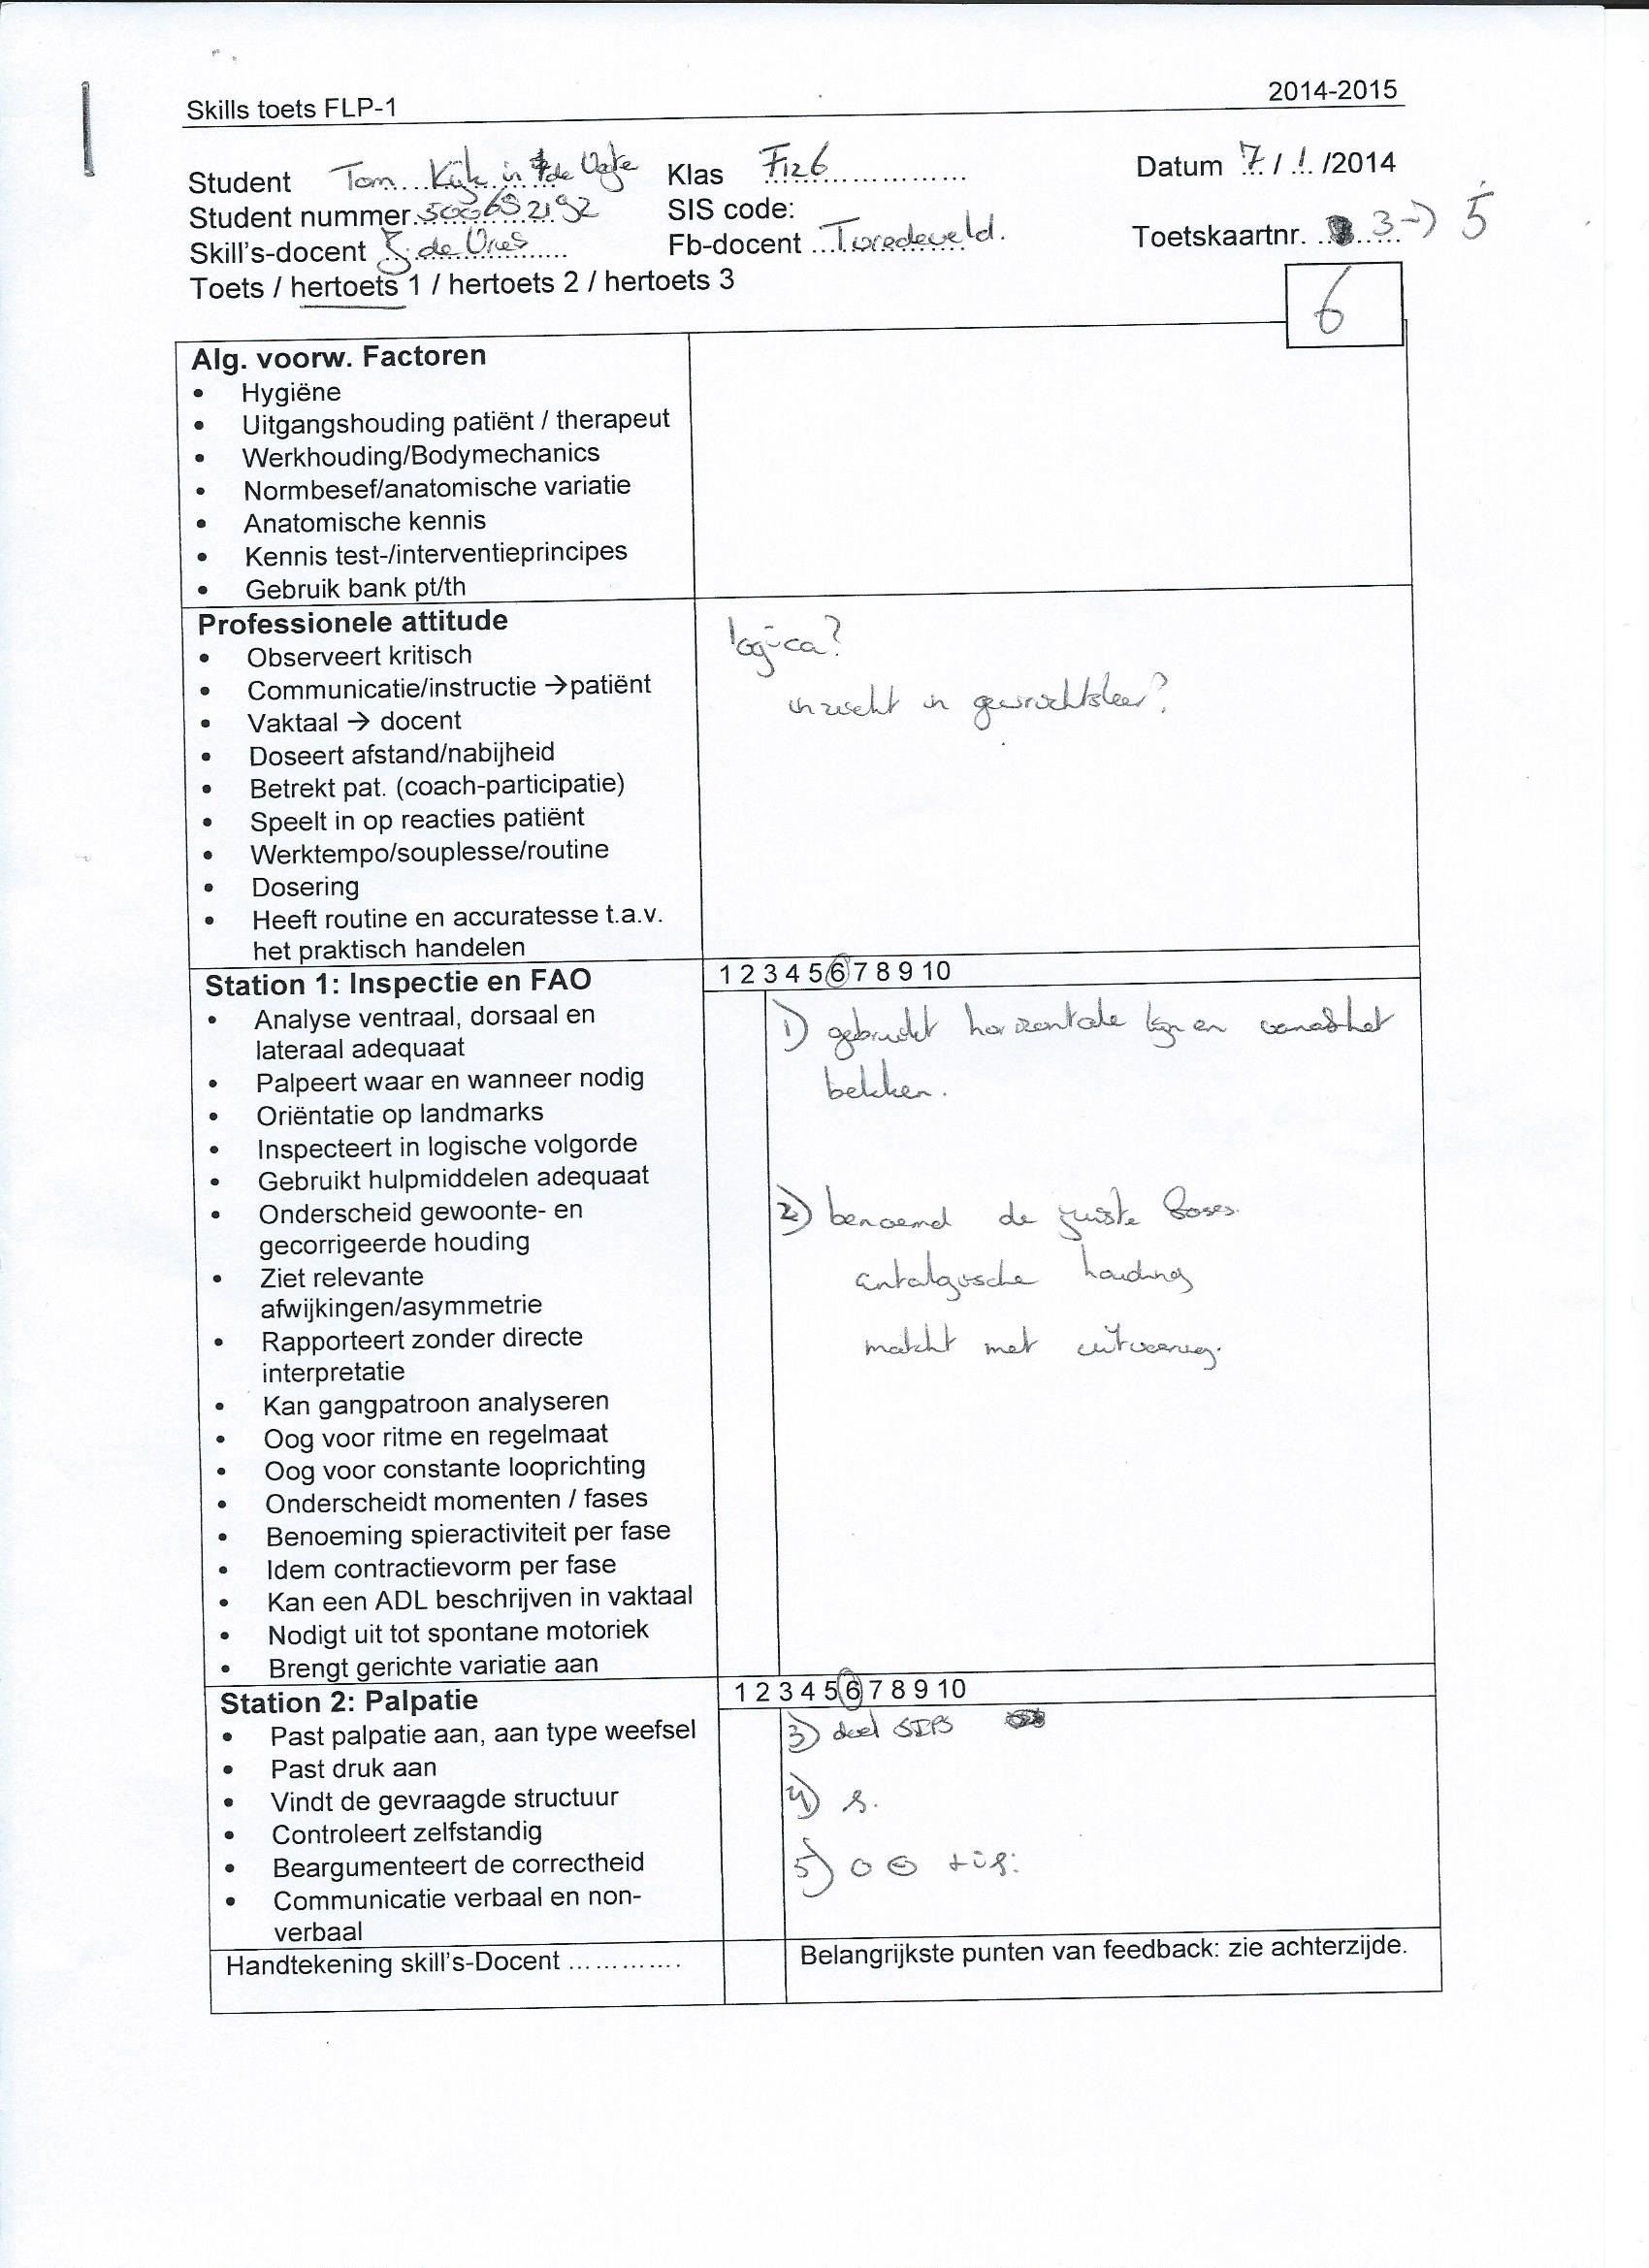 Skills toets FLP-1 2014-2015
Student Tom Kijk in de Vegte Klas F126 Datum 7/1/2014
Student nummer 500652192 SIS code:
Skill's-docent de Vries Fb-docent Twedeveld. Toetskaartnr. 3 → 5
Toets / hertoets 1 / hertoets 2 / hertoets 3
6
Alg. voorw. Factoren
• Hygiëne
• Uitgangshouding patiënt / therapeut
• Werkhouding/Bodymechanics
• Normbesef/anatomische variatie
• Anatomische kennis
• Kennis test-/interventieprincipes
• Gebruik bank pt/th
Professionele attitude
• Observeert kritisch
• Communicatie/instructie →patiënt
• Vaktaal → docent
• Doseert afstand/nabijheid
• Betrekt pat. (coach-participatie)
• Speelt in op reacties patiënt
• Werktempo/souplesse/routine
• Dosering
• Heeft routine en accuratesse t.a.v.
het praktisch handelen
logica?
inzicht in gewrichtsleer?
Station 1: Inspectie en FAO
1 2 3 4 5 6 7 8 9 10
• Analyse ventraal, dorsaal en
lateraal adequaat
• Palpeert waar en wanneer nodig
• Oriëntatie op landmarks
• Inspecteert in logische volgorde
• Gebruikt hulpmiddelen adequaat
• Onderscheid gewoonte- en
gecorrigeerde houding
• Ziet relevante
afwijkingen/asymmetrie
• Rapporteert zonder directe
interpretatie
• Kan gangpatroon analyseren
• Oog voor ritme en regelmaat
• Oog voor constante looprichting
• Onderscheidt momenten / fases
• Benoeming spieractiviteit per fase
• Idem contractievorm per fase
• Kan een ADL beschrijven in vaktaal
• Nodigt uit tot spontane motoriek
• Brengt gerichte variatie aan
1) gebruikt horizontale lijnen vanaf het
bekken.
2) benoemd de juiste fases.
antalgische houding
matcht met uitvoering.
Station 2: Palpatie
1 2 3 4 5 6 7 8 9 10
• Past palpatie aan, aan type weefsel
• Past druk aan
• Vindt de gevraagde structuur
• Controleert zelfstandig
• Beargumenteert de correctheid
• Communicatie verbaal en non-
verbaal
3) deel SIPS
4) g.
5)
Handtekening skill's-Docent ............
Belangrijkste punten van feedback: zie achterzijde.